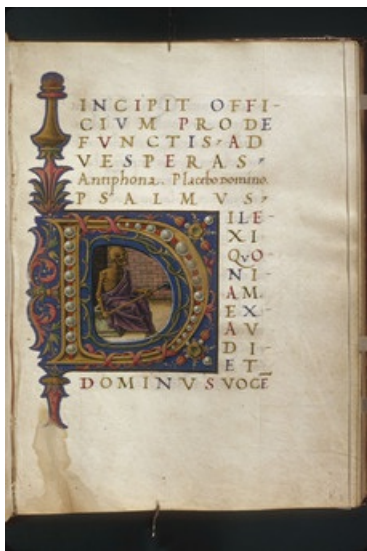 INCIPIT OFFI-
CIVM PRO DE
FVNCTIS, AD
VESPERAS,
Antiphona. Placebo domino.
PSALMVS,
DILE-
XI
QVO
NI
AM
EX
AV
DI-
ET
DOMINVS VOCE̅